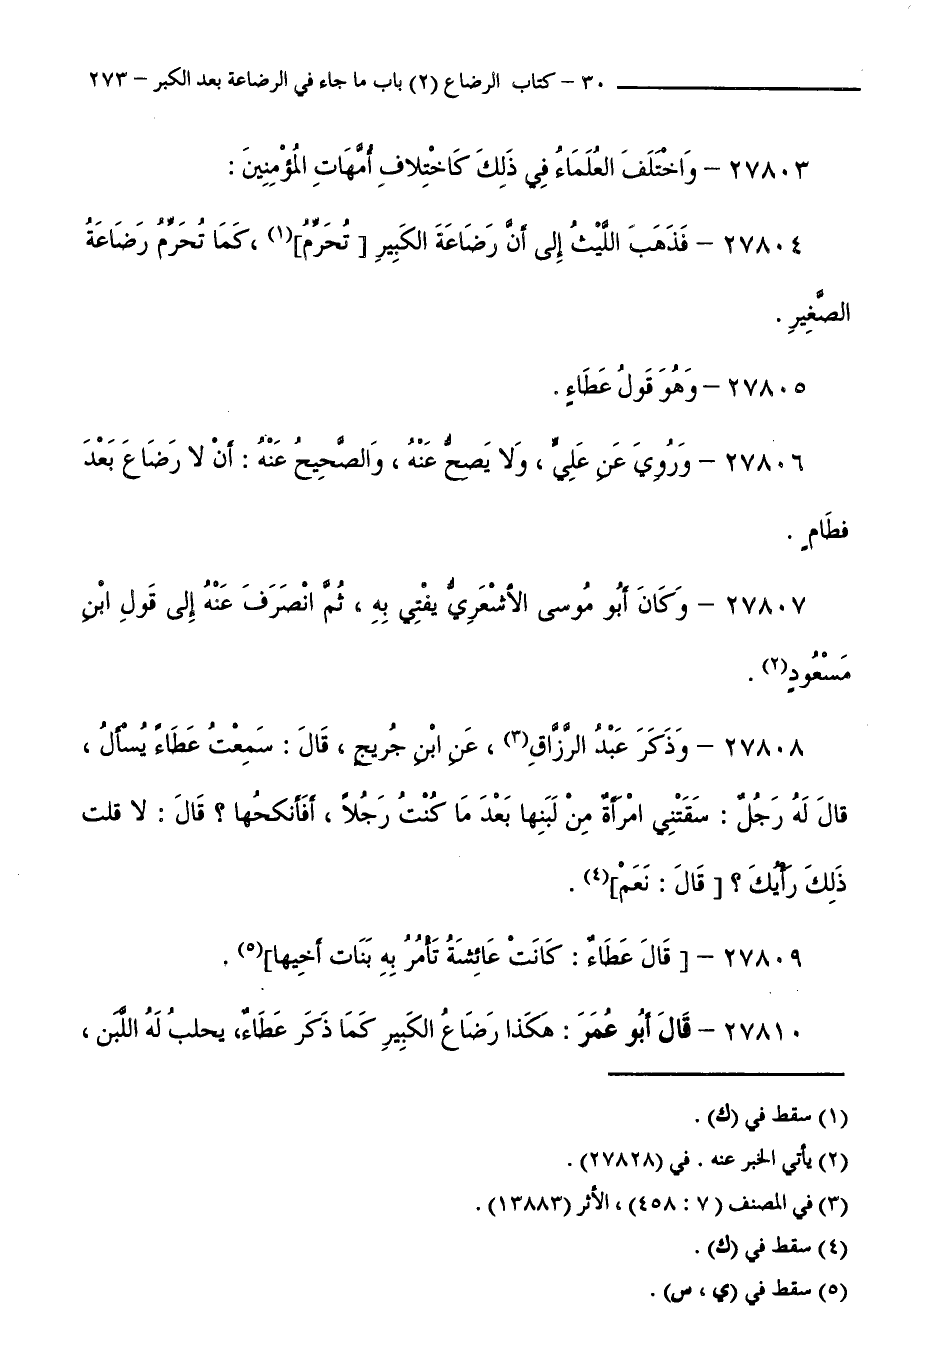 ٣٠ – كتاب الرضاع (٢) باب ما جاء في الرضاعة بعد الكبر – ٢٧٣
٢٧٨٠٣ – وَاخْتَلَفَ العُلَمَاءُ فِي ذَلِكَ كَاخْتِلافِ أُمَّهَاتِ المُؤْمِنِينَ :
٢٧٨٠٤ – فَذَهَبَ اللَّيْثُ إِلى أَنَّ رَضَاعَةَ الكَبِيرِ [ تُحَرِّمُ](١) ، كَمَا تُحَرِّمُ رَضَاعَةُ
الصَّغِيرِ .
٢٧٨٠٥ – وَهُوَ قَولُ عَطَاءٍ .
٢٧٨٠٦ – وَرُوِيَ عَن عَلِيٍّ ، وَلا يَصِحُّ عَنْهُ ، وَالصَّحِيحُ عَنْهُ : أَنْ لا رَضَاعَ بَعْدَ
فطَامٍ .
٢٧٨٠٧ – وَكَانَ أَبُو مُوسى الأشْعَرِيُّ يفْتِي بِهِ ، ثُمَّ انْصَرَفَ عَنْهُ إِلى قَولِ ابْنِ
مَسْعُودٍ(٢) .
٢٧٨٠٨ – وَذَكَرَ عَبْدُ الرَّزَّاقِ(٣) ، عَنِ ابْنِ جُرِيجٍ ، قَالَ : سَمِعْتُ عَطَاءً يُسْأَلُ ،
قالَ لَهُ رَجُلٌ : سَقَتْنِي امْرَأَةٌ مِنْ لَبَنِها بَعْدَ مَا كُنْتُ رَجُلاً ، أَفَأَنكحُها ؟ قَالَ : لا قلت
ذَلِكَ رَأْيُكَ ؟ [ قَالَ : نَعَمْ](٤) .
٢٧٨٠٩ – [ قَالَ عَطَاءٌ : كَانَتْ عَائِشَةُ تَأْمُرُ بِهِ بَنَات أَخِيها](٥) .
٢٧٨١٠ – قَالَ أَبُو عُمَرَ : هكَذا رَضَاعُ الكَبِيرِ كَمَا ذَكَرَ عَطَاءٌ، يحلبُ لَهُ اللَّبَن ،
(١) سقط في (ك) .
(٢) يأتي الخبر عنه . في (٢٧٨٢٨) .
(٣) في المصنف (٧ : ٤٥٨) ، الأثر (١٣٨٨٣) .
(٤) سقط في (ك) .
(٥) سقط في (ي ، س) .